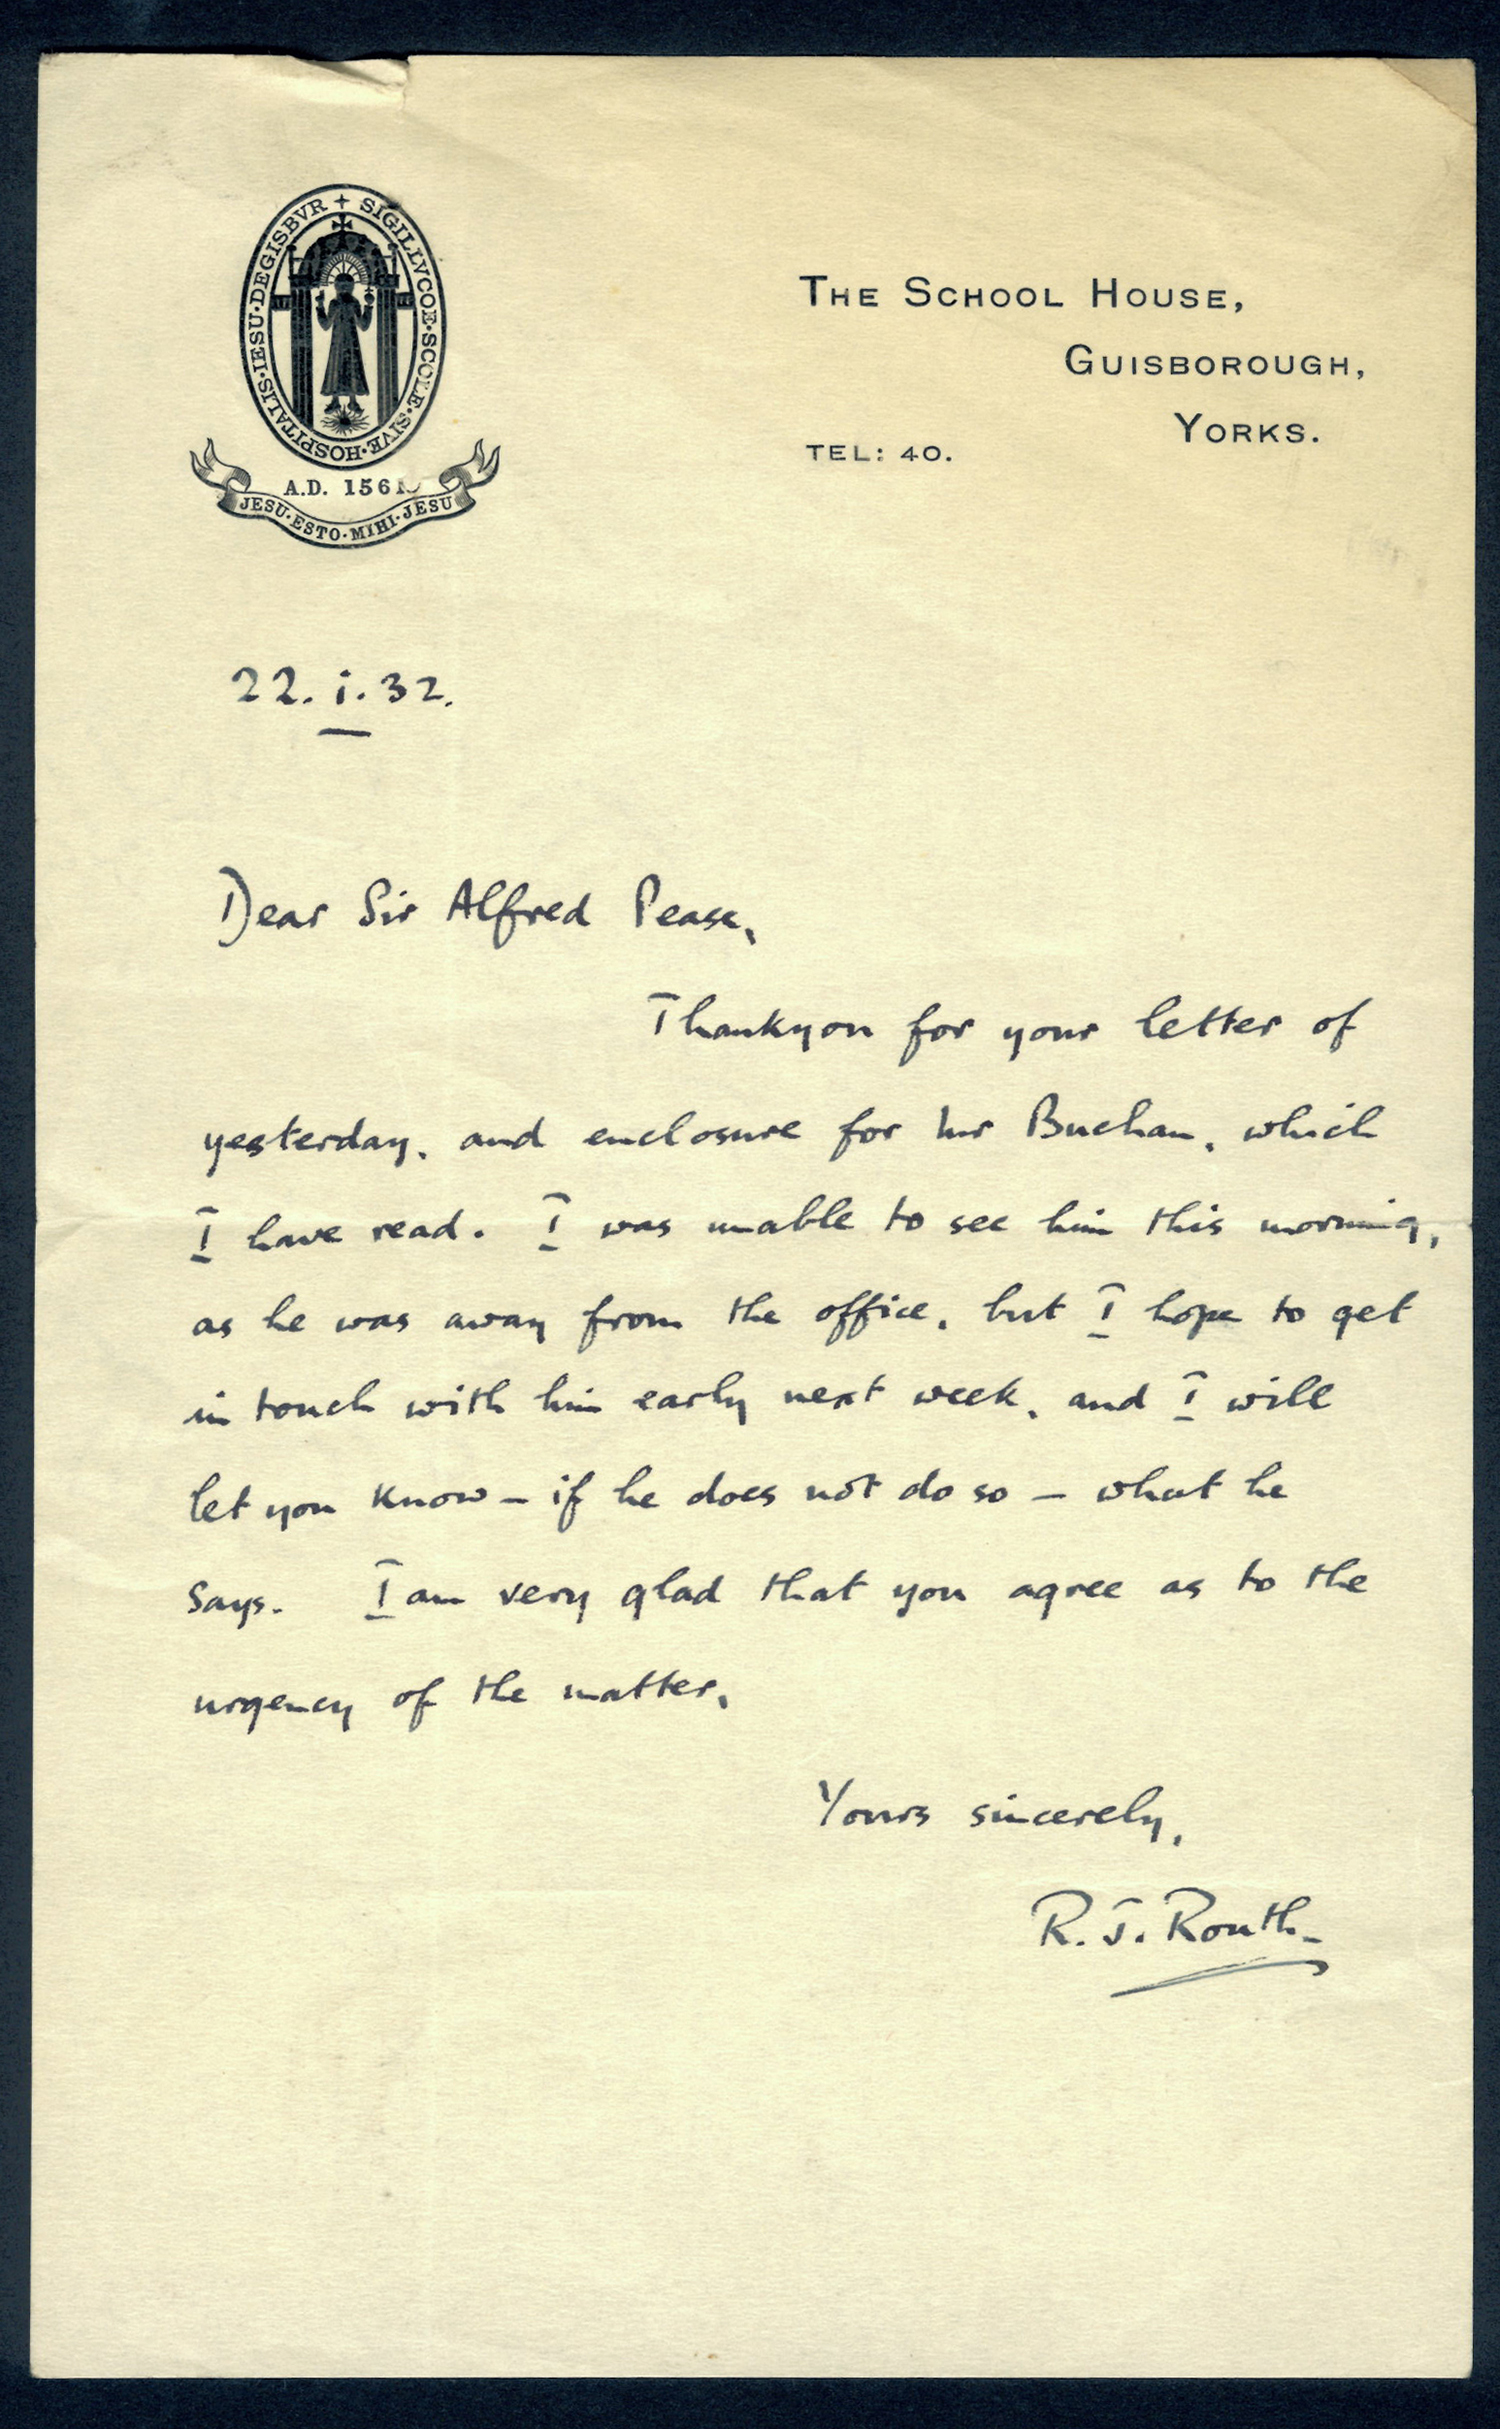 SIGILLVCOE·SCOLE·SIVE·HOSPITALIS·IESU·DEGISBVR +
A.D. 1561
JESU·ESTO·MIHI·JESU
THE SCHOOL HOUSE,
GUISBOROUGH,
YORKS.
TEL: 40.
22. i. 32.
Dear Sir Alfred Pease,
Thankyou for your letter of
yesterday, and enclosure for Mr Buchan, which
I have read. I was unable to see him this morning,
as he was away from the office, but I hope to get
in touch with him early next week, and I will
let you know – if he does not do so – what he
says. I am very glad that you agree as to the
urgency of the matter.
Yours sincerely,
R. J. Routh